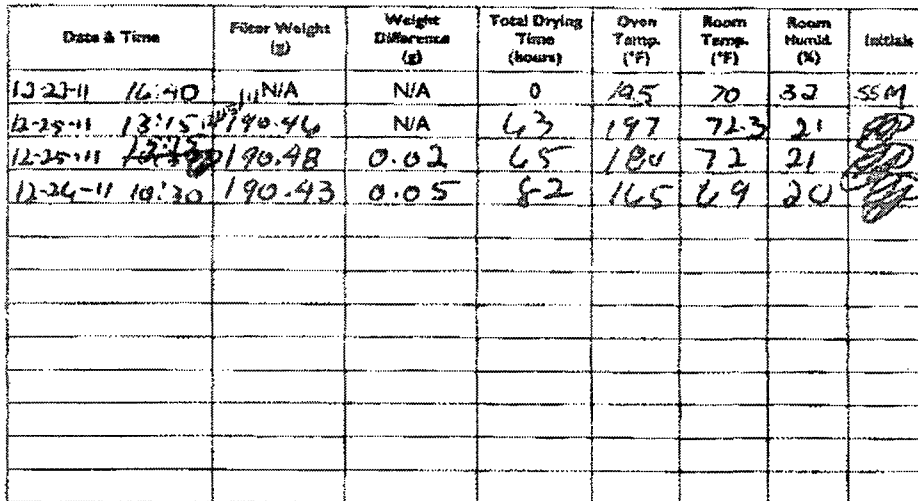 Date & Time Filter Weight (g) Weight Difference (g) Total Drying Time (hours) Oven Temp. (°F) Room Temp. (°F) Room Humid. (%) Initials
12-23-11 16:40 N/A N/A 0 195 70 32 SSM
12-25-11 13:15 190.46 N/A 43 197 72.3 21
12-25-11 190.48 0.02 45 180 72 21
12-26-11 10:30 190.43 0.05 82 165 69 20